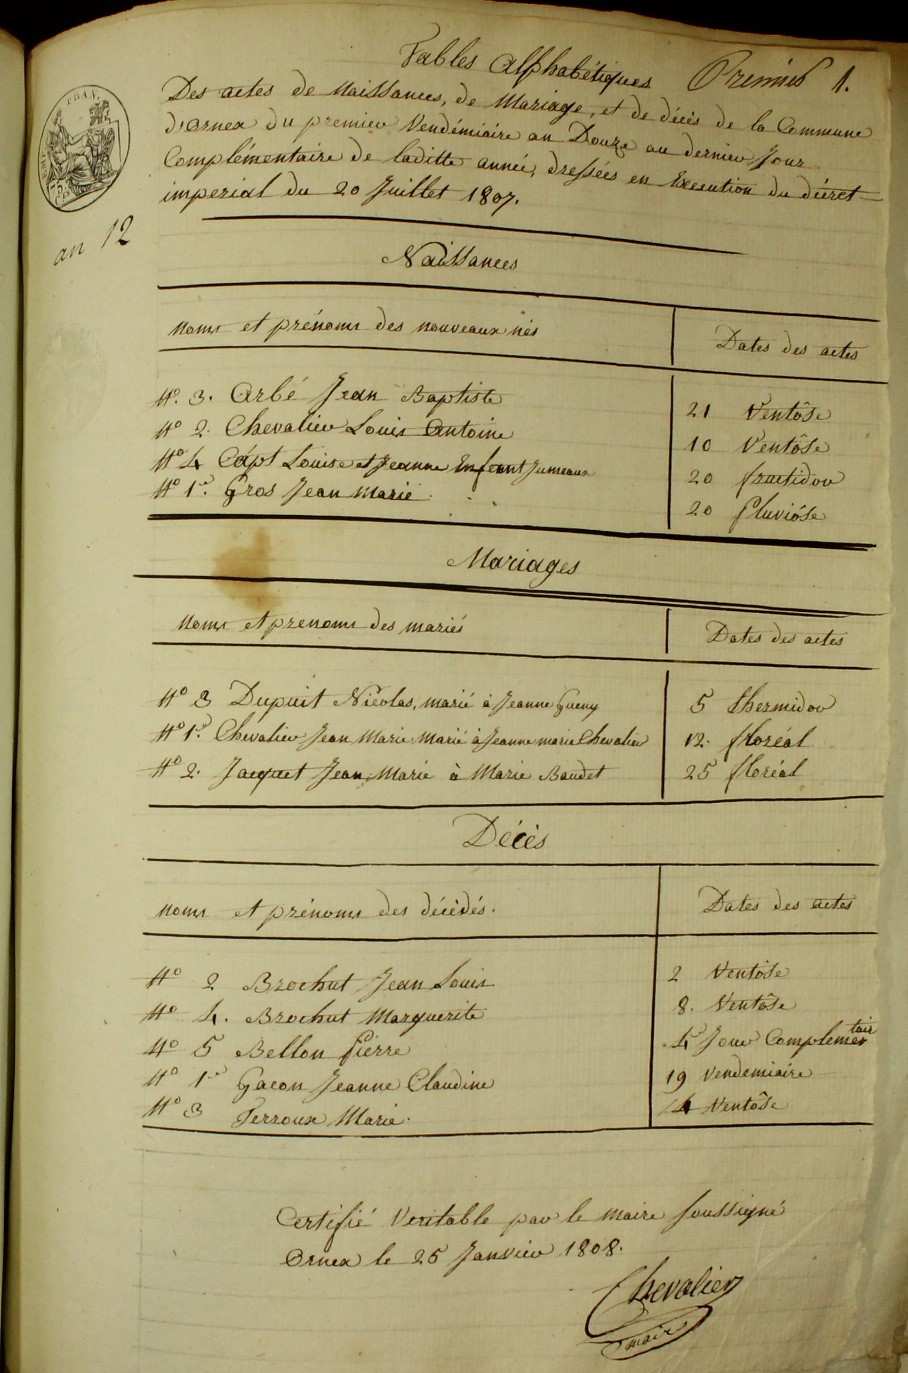 Tables Alphabétiques Premier 1.
Des actes de Naissances, de Mariage, et de décès de la Commune
d'Ornex du premier Vendémiaire an Douze au dernier Jour
Complémentaire de laditte année, dressées en Execution du décret
imperial du 20 Juillet 1807.
an 12
Naissances
Noms et prénoms des nouveaux nés Dates des actes
N°. 3. Arbé Jean Baptiste 21 Ventôse
N° 2. Chevalier Louis Antoine 10 Ventôse
N° 4 Capt Louise et Jeanne Enfant Jumeaux 20 fructidor
N° 1er. Gros Jean Marie. 20 Pluviôse
Mariages
Noms et prenoms des mariés Dates des actes
N° 3 Dupuit Nicolas, marié à Jeanne 5 thermidor
N° 1er. Chevalier Jean Marie marié à Jeanne marie Chevalier 12. floréal
N° 2. Jacquet Jean, Marie à Marie Baudet 25 floréal
Décès
Noms et prénoms des décédés. Dates des actes
N° 2 Brochut Jean Louis 2 Ventôse
N° 4. Brochut Marguerite 8. Ventôse
N° 5 Bellon Pierre 4e Jour Complementair
N° 1er Gacon Jeanne Claudine 19 Vendemiaire
N° 3 Terroux Marie. 4 Ventôse
Certifié Veritable par le maire soussigné
Ornex le 25 Janvier 1808.
Chevalier
mair